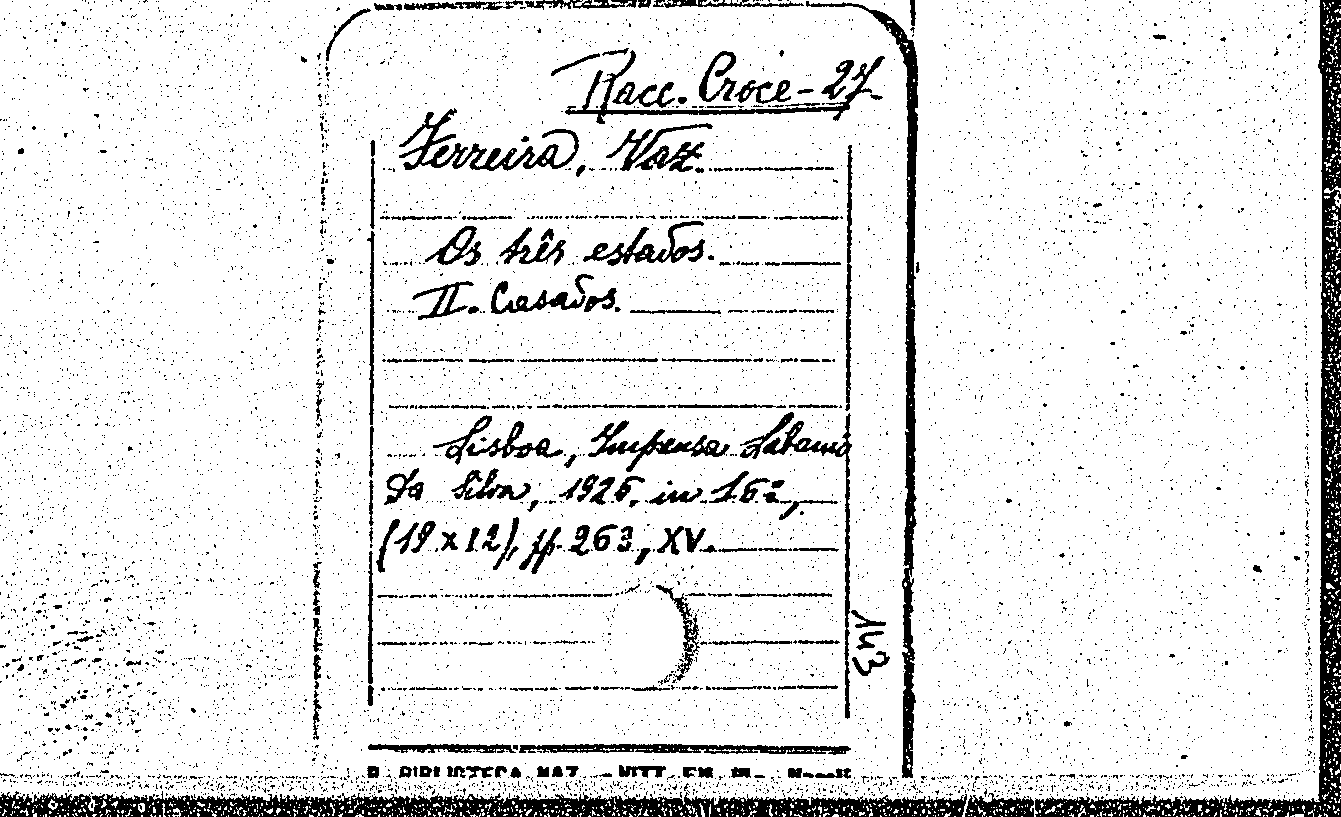 Racc. Croce - 27
Ferreira, Vaz.
Os três estados.
II. Casados.
Lisboa, Imprensa Libanio
da Silva, 1926. in 16º,
(19 x 12), pp. 263, XV.
143
R. BIBLIOTECA NAZ. - VITT. EM. III - Napoli